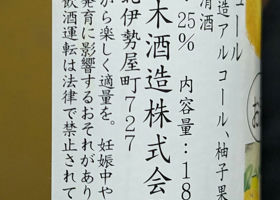 ュール
造アルコール、柚子果
清酒
25% 内容量:18
木酒造株式会
北伊勢屋町727
がら楽しく適量を。妊娠中や
発育に影響するおそれがあり
飲酒運転は法律で禁止されて
お